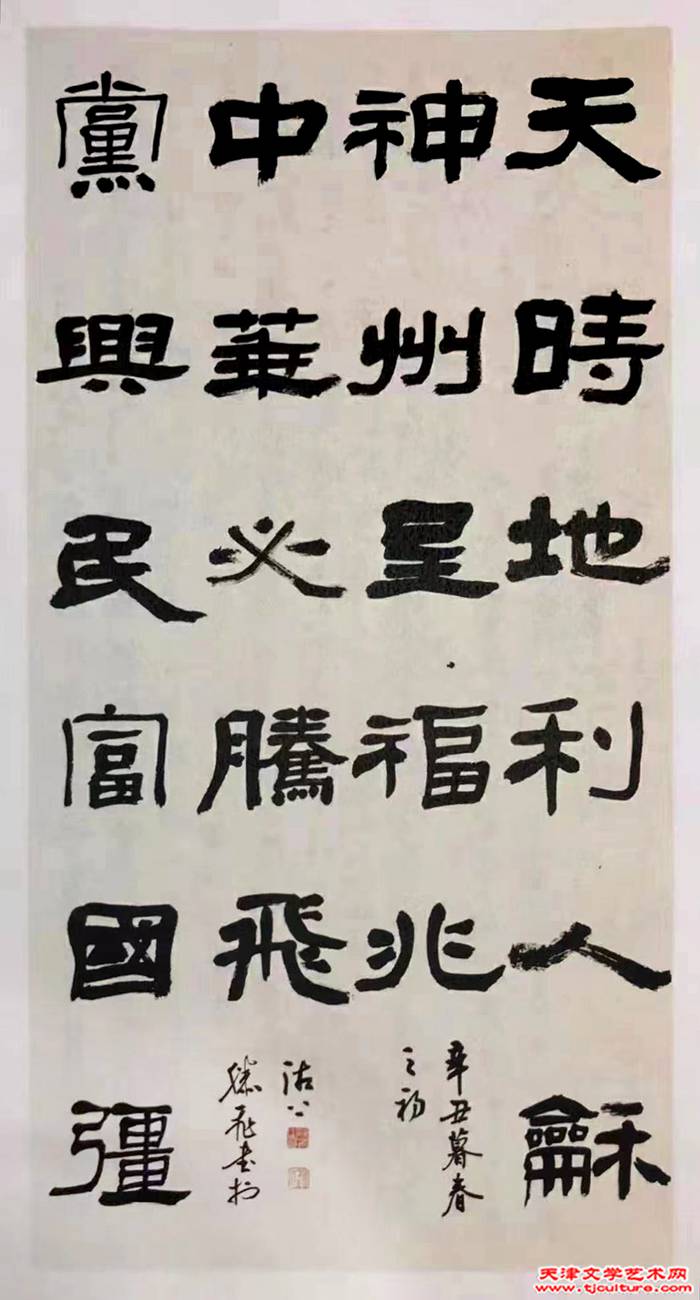 天時地利人龢
神州呈福兆
辛丑暮春
之初
中華必騰飛
沽
飛書於
黨興民富國彊
天津文学艺术网
www.tjculture.com